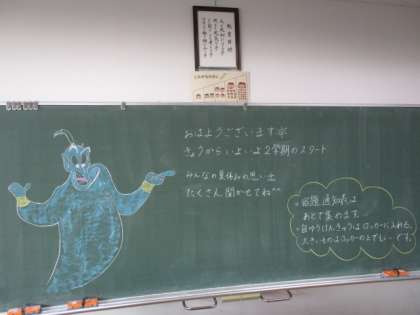 おはようございます
きょうからいよいよ2学期のスタート
みんなの夏休みの思い出
たくさん聞かせてね^^
・宿題、通知表は
あとで集めます。
・自ゆうけんきゅうはロッカーに入れる。
大きいものはロッカーの上でもいーです。
教育目標